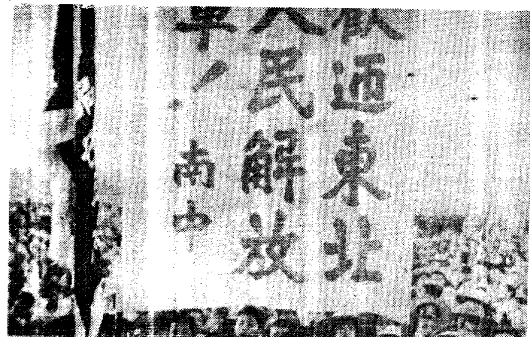 歡迎東北
人民解放
軍！南中